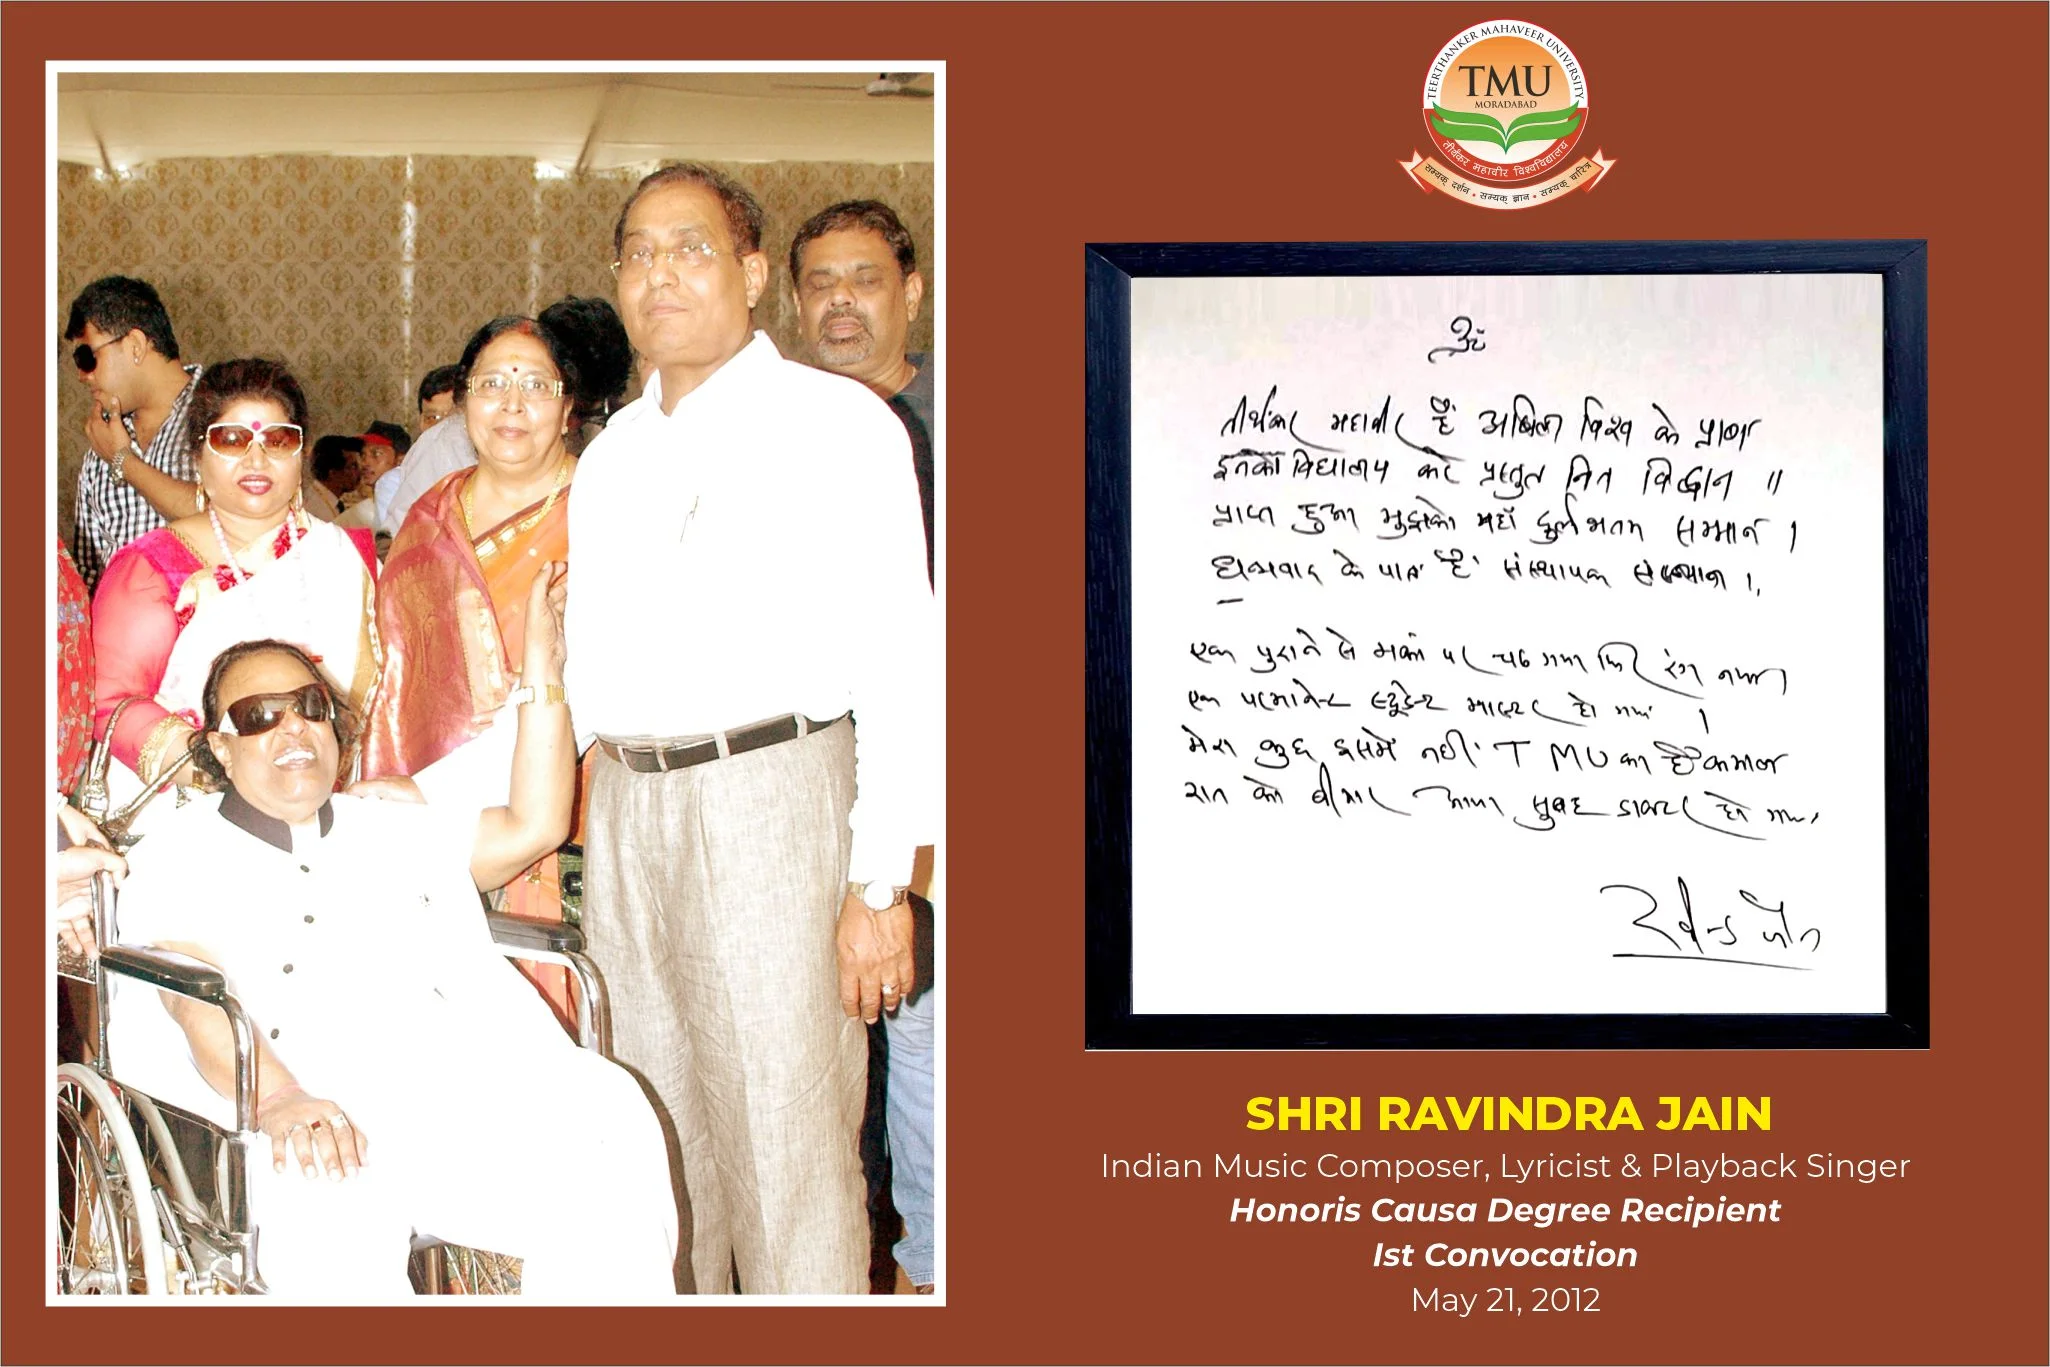 TEERTHANKER MAHAVEER UNIVERSITY
TMU
MORADABAD
तीर्थंकर महावीर विश्वविद्यालय
सम्यक् दर्शन • सम्यक् ज्ञान • सम्यक् चारित्र
ॐ
तीर्थंकर महावीर हैं अखिल विश्व के प्राण
इनका विद्यालय करे प्रस्तुत नित विद्वान ॥
प्राप्त हुआ मुझको यहाँ दुर्लभतम सम्मान ।
धन्यवाद के पात्र हैं संस्थापक ।
एक पुराने से मकां पर चढ़ गया फिर रंग नया ।
एक परमानेन्ट स्टूडेन्ट मास्टर हो गया ।
मेरा कुछ इसमें नहीं TMU का है कमाल
रात को बीमार आया सुबह डाक्टर हो गया ।
रवीन्द्र जैन
SHRI RAVINDRA JAIN
Indian Music Composer, Lyricist & Playback Singer
Honoris Causa Degree Recipient
Ist Convocation
May 21, 2012